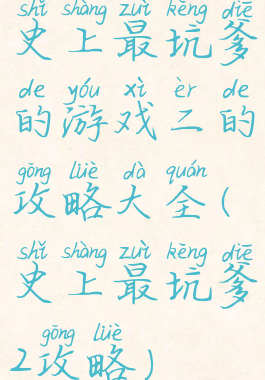 shǐ shàng zuì kēng diē
史上最坑爹
de yóu xì èr de
的游戏二的
gōng lüè dà quán
攻略大全(
shǐ shàng zuì kēng diē
史上最坑爹
gōng lüè
2攻略)